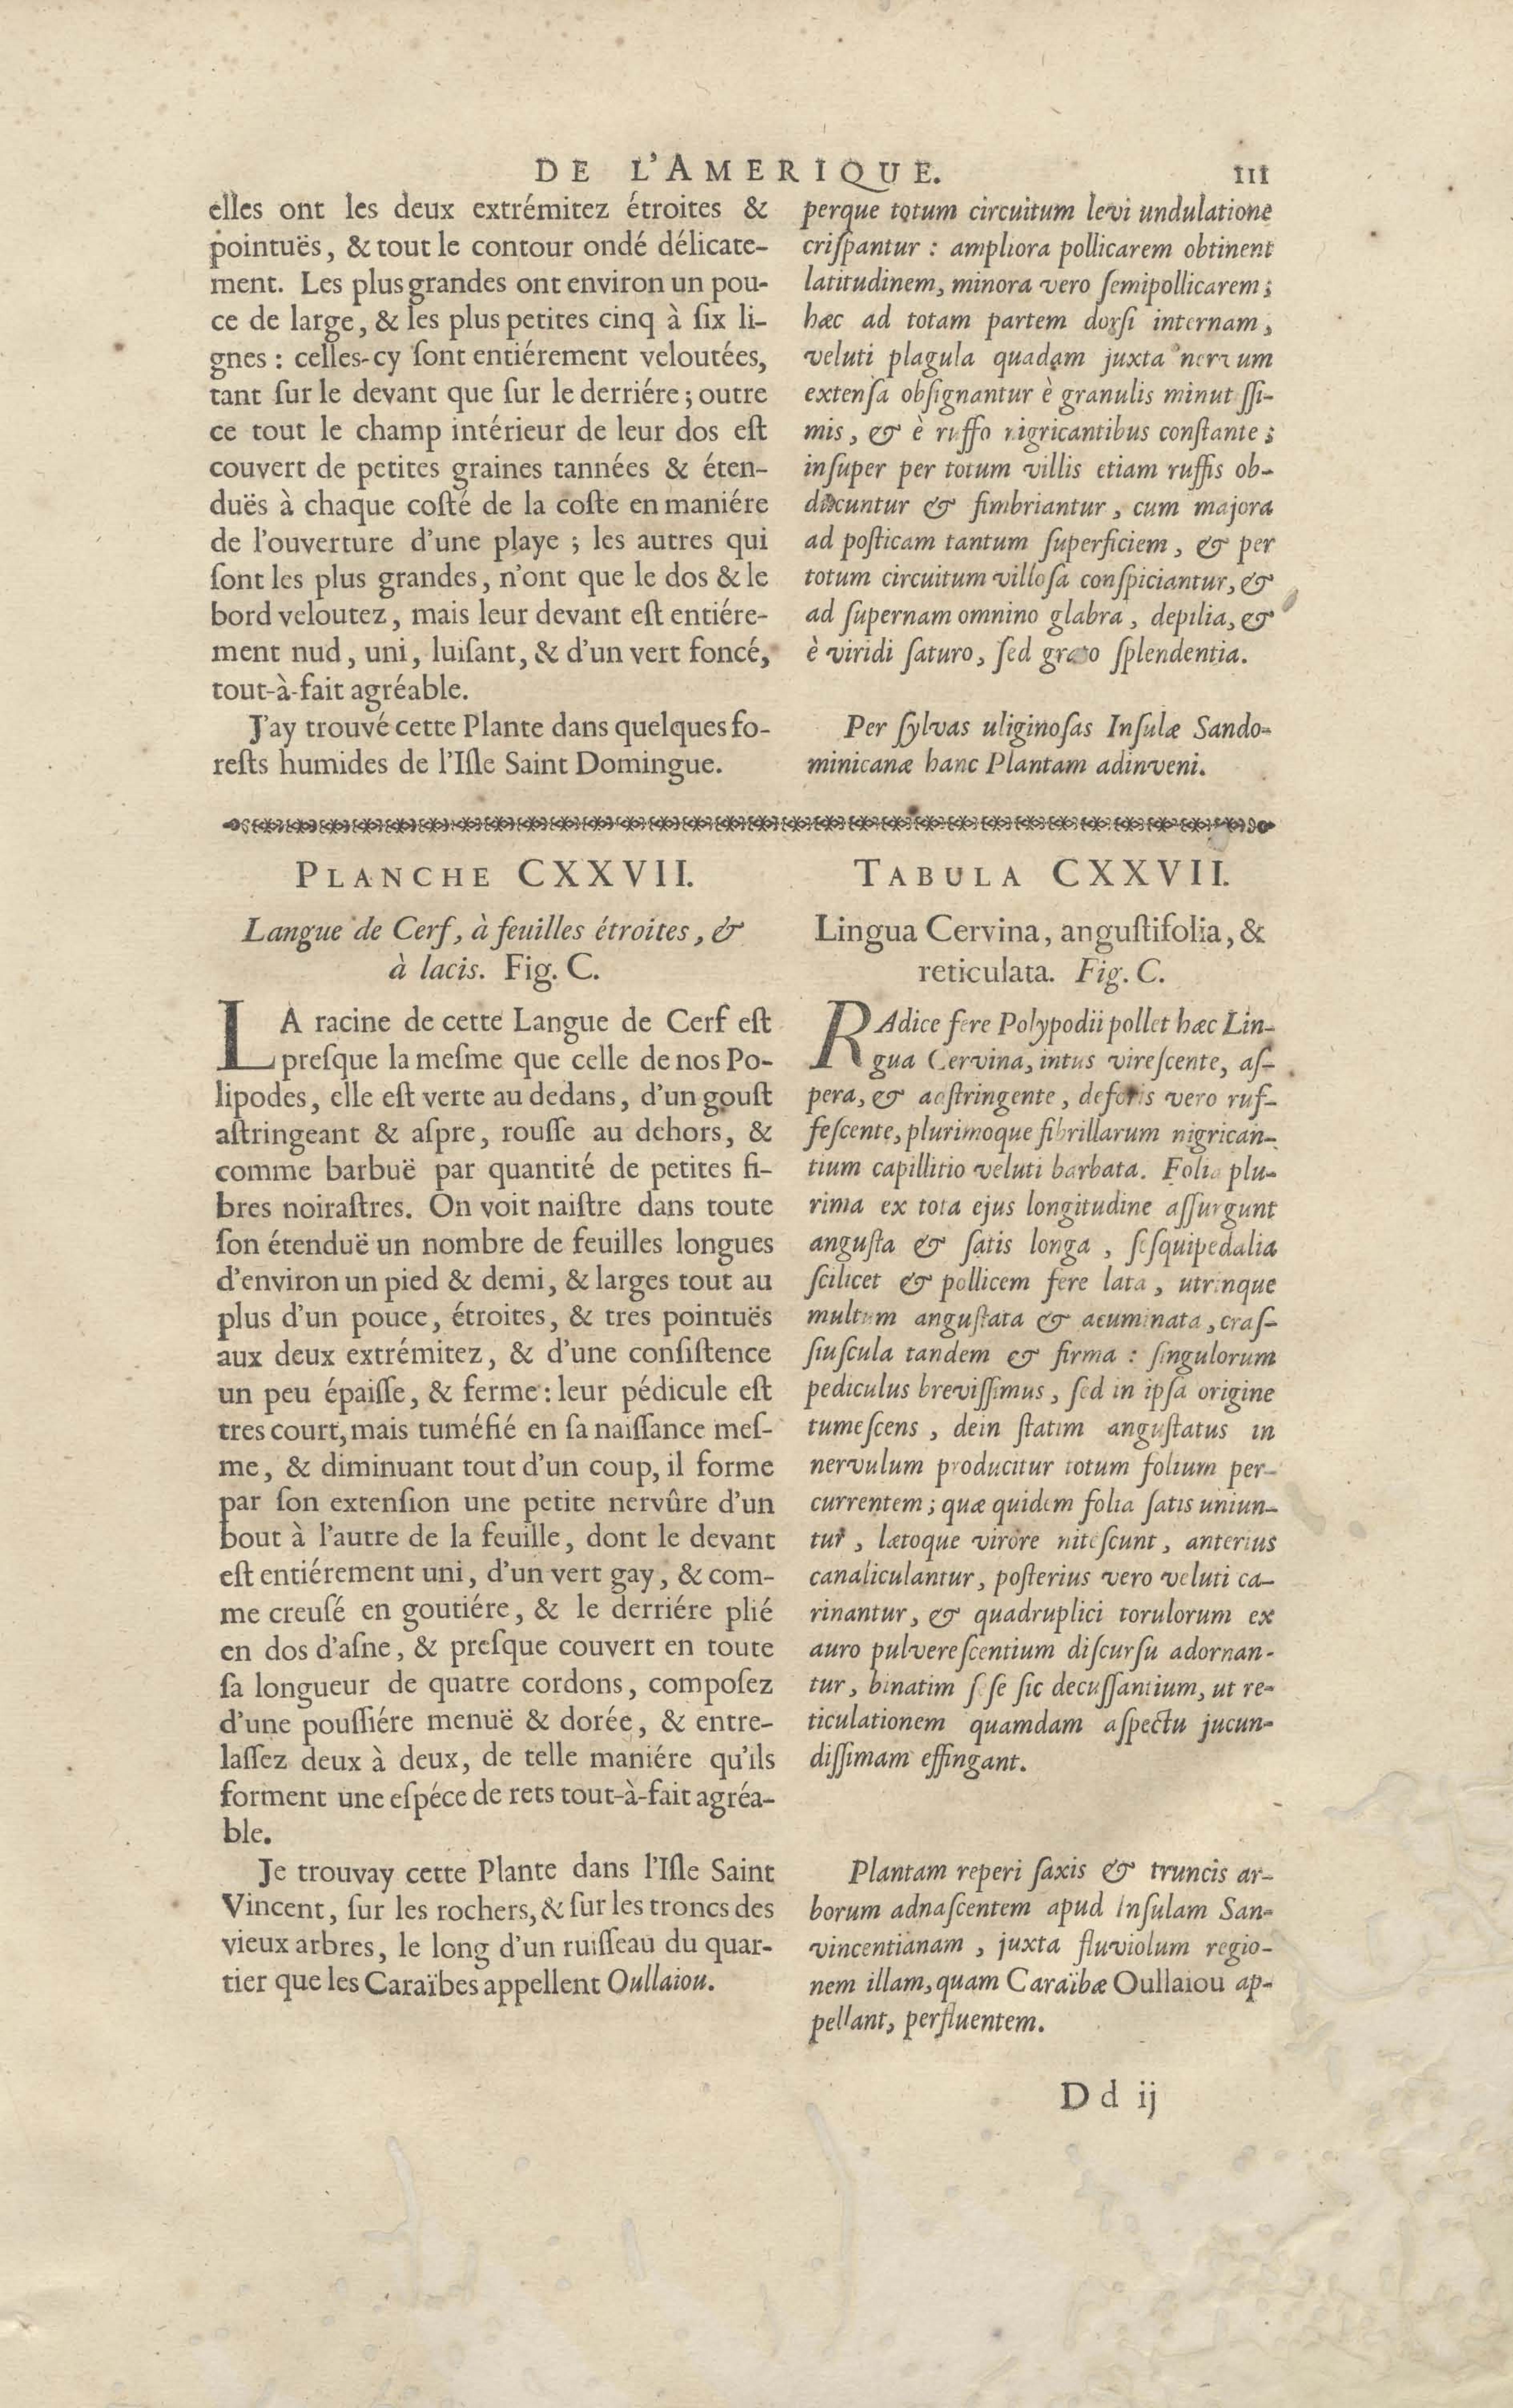 DE L'AMERIQUE. 111
elles ont les deux extrémitez étroites &
pointuës, & tout le contour ondé délicate-
ment. Les plus grandes ont environ un pou-
ce de large, & les plus petites cinq à ſix li-
gnes : celles-cy ſont entiérement veloutées,
tant ſur le devant que ſur le derriére ; outre
ce tout le champ intérieur de leur dos eſt
couvert de petites graines tannées & éten-
duës à chaque coſté de la coſte en maniére
de l'ouverture d'une playe ; les autres qui
ſont les plus grandes, n'ont que le dos & le
bord veloutez, mais leur devant eſt entiére-
ment nud, uni, luiſant, & d'un vert foncé,
tout-à-fait agréable.
J'ay trouvé cette Plante dans quelques fo-
reſts humides de l'Iſle Saint Domingue.
perque totum circuitum levi undulatione
criſpantur : ampliora pollicarem obtinent
latitudinem, minora vero ſemipollicarem ;
hæc ad totam partem dorſi internam,
veluti plagula quadam juxta nervum
extenſa obſignantur è granulis minutiſſi-
mis, & è ruffo nigricantibus conſtante ;
inſuper per totum villis etiam ruffis ob-
ducuntur & fimbriantur, cum majora
ad poſticam tantum ſuperficiem, & per
totum circuitum villoſa conſpiciantur, &
ad ſupernam omnino glabra, depilia, &
è viridi ſaturo, ſed grato ſplendentia.
Per ſylvas uliginoſas Inſulæ Sando-
minicanæ hanc Plantam adinveni.
PLANCHE CXXVII.
Langue de Cerf, à feuilles étroites, &
à lacis. Fig. C.
LA racine de cette Langue de Cerf eſt
preſque la meſme que celle de nos Po-
lipodes, elle eſt verte au dedans, d'un gouſt
aſtringeant & aſpre, rouſſe au dehors, &
comme barbuë par quantité de petites fi-
bres noiraſtres. On voit naiſtre dans toute
ſon étenduë un nombre de feuilles longues
d'environ un pied & demi, & larges tout au
plus d'un pouce, étroites, & tres pointuës
aux deux extrémitez, & d'une conſiſtence
un peu épaiſſe, & ferme : leur pédicule eſt
tres court, mais tuméfié en ſa naiſſance meſ-
me, & diminuant tout d'un coup, il forme
par ſon extenſion une petite nervûre d'un
bout à l'autre de la feuille, dont le devant
eſt entiérement uni, d'un vert gay, & com-
me creuſé en goutiére, & le derriére plié
en dos d'aſne, & preſque couvert en toute
ſa longueur de quatre cordons, compoſez
d'une pouſſiére menuë & dorée, & entre-
laſſez deux à deux, de telle maniére qu'ils
forment une eſpéce de rets tout-à-fait agréa-
ble.
Je trouvay cette Plante dans l'Iſle Saint
Vincent, ſur les rochers, & ſur les troncs des
vieux arbres, le long d'un ruiſſeau du quar-
tier que les Caraïbes appellent Oullaiou.
TABULA CXXVII.
Lingua Cervina, anguſtifolia, &
reticulata. Fig. C.
RAdice fere Polypodii pollet hæc Lin-
gua Cervina, intus vireſcente, aſ-
pera, & adſtringente, deforis vero ruf-
feſcente, plurimoque fibrillarum nigrican-
tium capillitio veluti barbata. Folia plu-
rima ex tota ejus longitudine aſſurgunt
anguſta & ſatis longa, ſeſquipedalia
ſcilicet & pollicem fere lata, utrinque
multum anguſtata & acuminata, craſ-
ſiuſcula tandem & firma : ſingulorum
pediculus breviſſimus, ſed in ipſa origine
tumeſcens, dein ſtatim anguſtatus in
nervulum producitur totum folium per-
currentem ; quæ quidem folia ſatis uniun-
tur, lætoque virore niteſcunt, anterius
canaliculantur, poſterius vero veluti ca-
rinantur, & quadruplici torulorum ex
auro pulvereſcentium diſcurſu adornan-
tur, binatim ſeſe ſic decuſſantium, ut re-
ticulationem quamdam aſpectu jucun-
diſſimam effingant.
Plantam reperi ſaxis & truncis ar-
borum adnaſcentem apud Inſulam San-
vincentianam, juxta fluviolum regio-
nem illam, quam Caraïbæ Oullaiou ap-
pellant, perfluentem.
D d ij